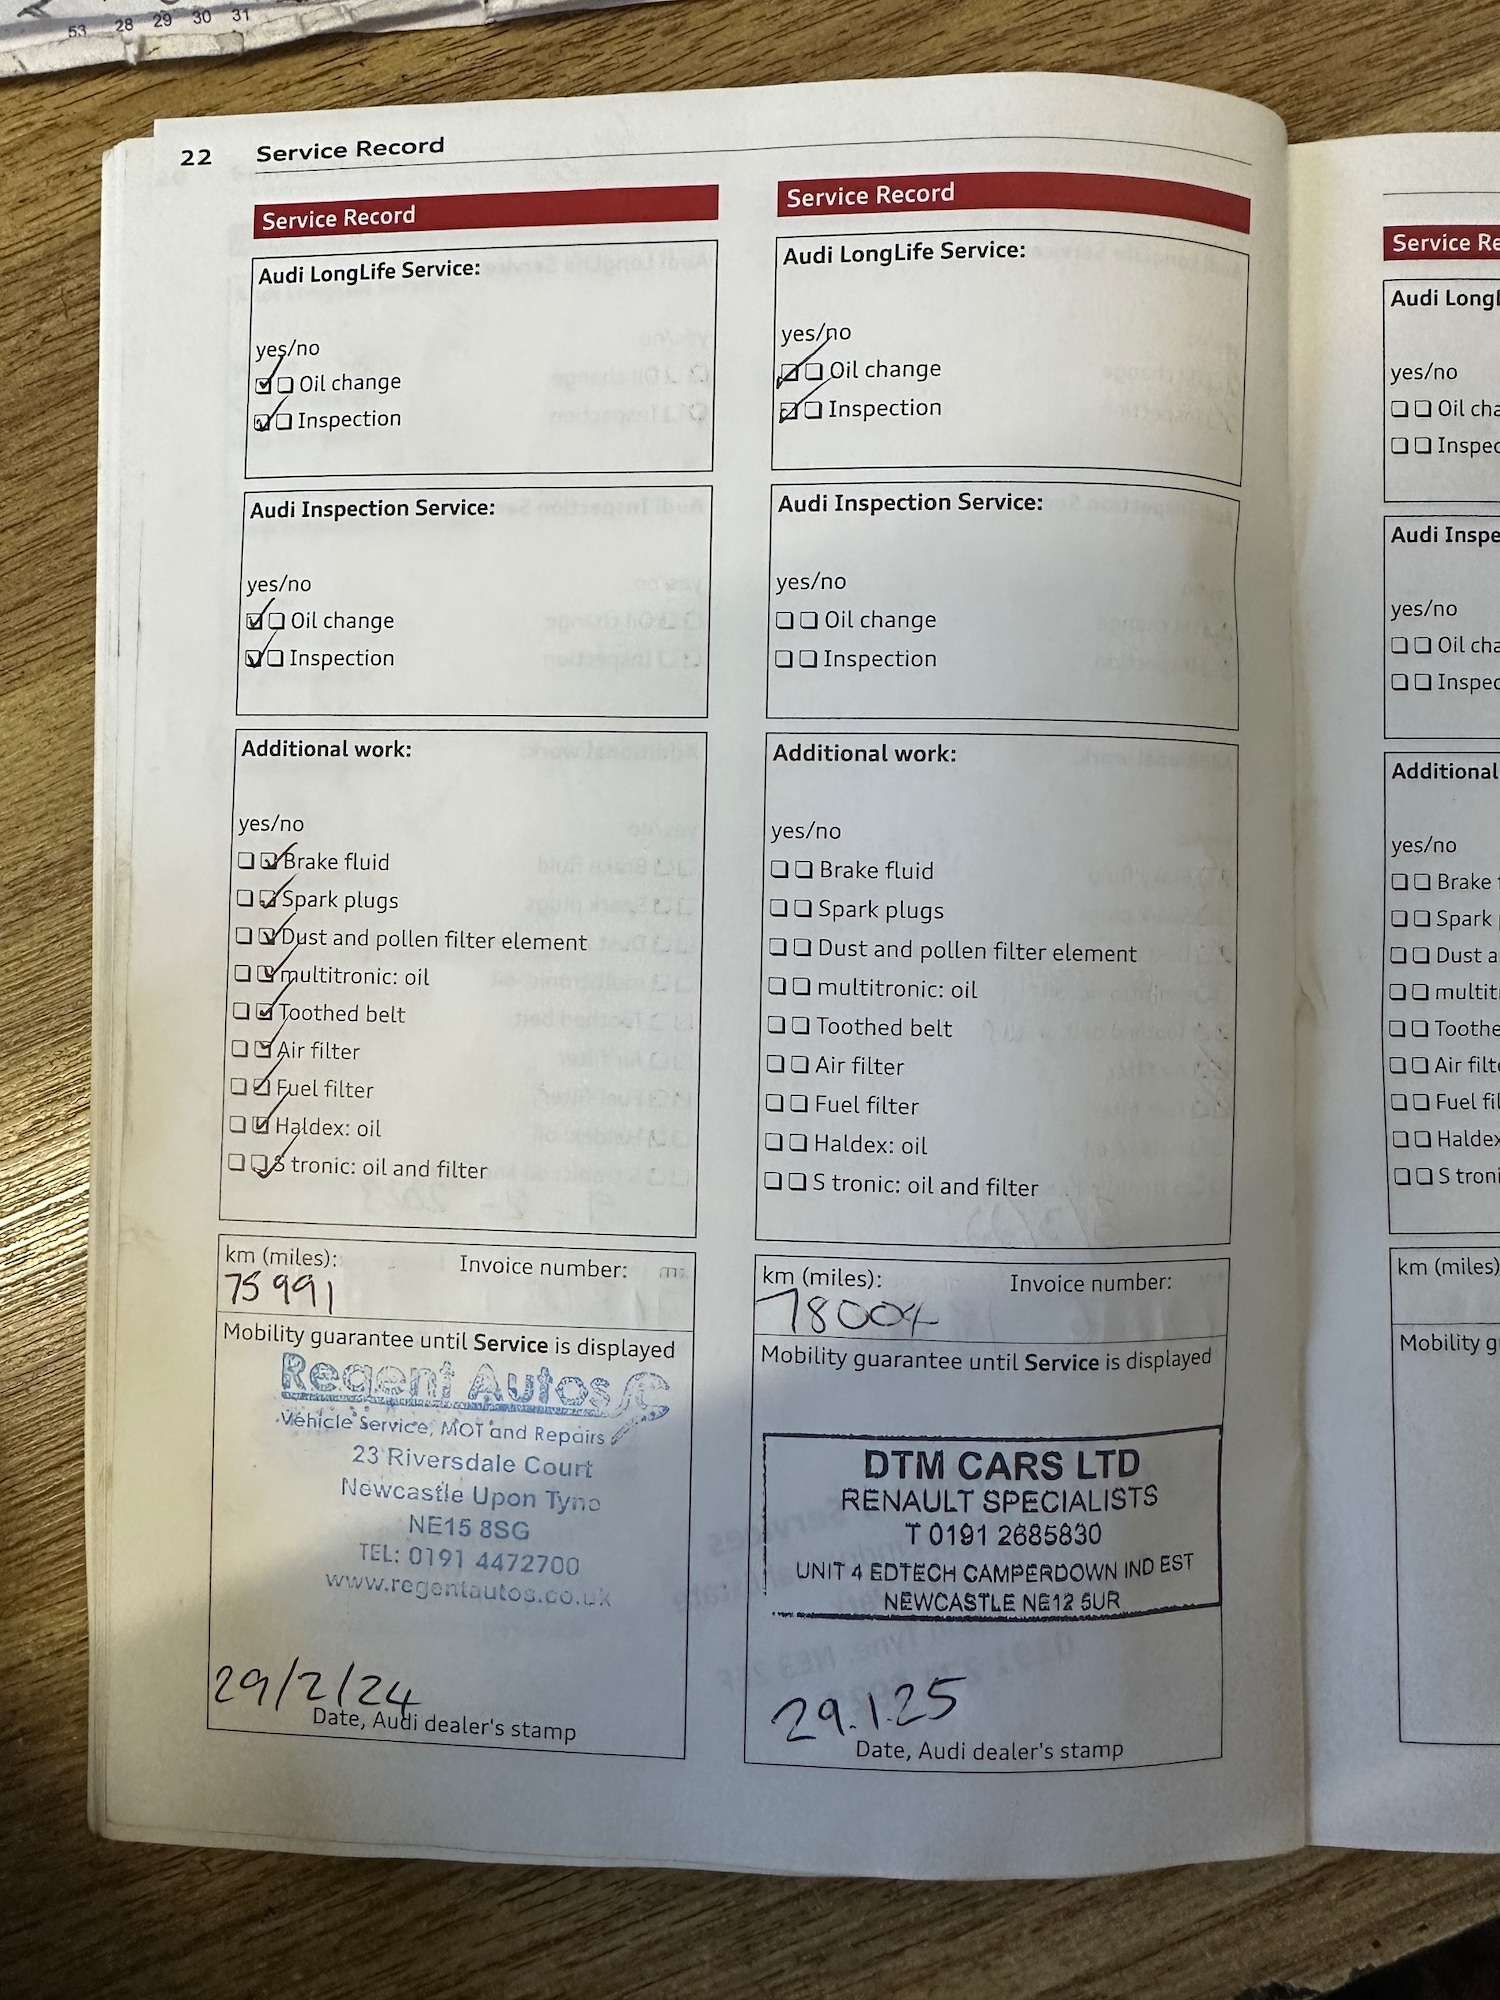 53 28 29 30 31
22 Service Record
Service Record
Audi LongLife Service:
yes/no
Oil change
Inspection
Audi Inspection Service:
yes/no
Oil change
Inspection
Additional work:
yes/no
Brake fluid
Spark plugs
Dust and pollen filter element
multitronic: oil
Toothed belt
Air filter
Fuel filter
Haldex: oil
S tronic: oil and filter
km (miles): Invoice number:
75991
Mobility guarantee until Service is displayed
Regent Autos
Vehicle Service, MOT and Repairs
23 Riversdale Court
Newcastle Upon Tyne
NE15 8SG
TEL: 0191 4472700
www.regentautos.co.uk
29/2/24
Date, Audi dealer's stamp
Service Record
Audi LongLife Service:
yes/no
Oil change
Inspection
Audi Inspection Service:
yes/no
Oil change
Inspection
Additional work:
yes/no
Brake fluid
Spark plugs
Dust and pollen filter element
multitronic: oil
Toothed belt
Air filter
Fuel filter
Haldex: oil
S tronic: oil and filter
km (miles): Invoice number:
78004
Mobility guarantee until Service is displayed
DTM CARS LTD
RENAULT SPECIALISTS
T 0191 2685830
UNIT 4 EDTECH CAMPERDOWN IND EST
NEWCASTLE NE12 5UR
29.1.25
Date, Audi dealer's stamp
Service Re
Audi Longl
yes/no
Oil cha
Inspec
Audi Inspe
yes/no
Oil cha
Inspec
Additional
yes/no
Brake f
Spark
Dust a
multit
Toothe
Air filt
Fuel fil
Haldex
S troni
km (miles)
Mobility g